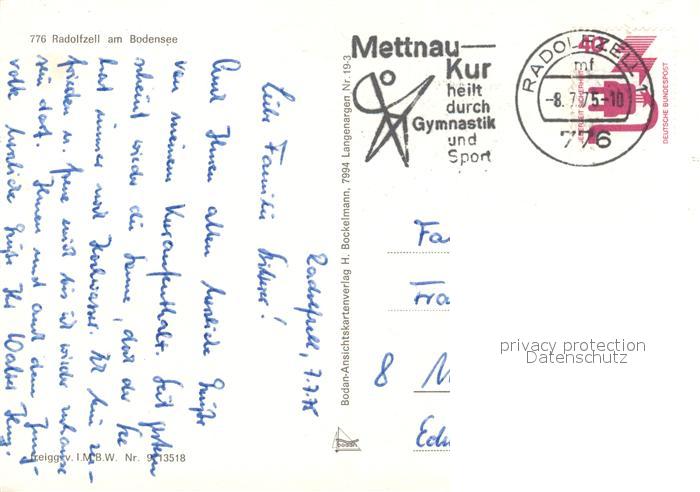 776 Radolfzell am Bodensee
Radolfzell, 7.7.75
Liebe Familie
Auch Ihnen allen herzliche Grüße
von meinem Kuraufenthalt. Seit gestern
scheint wieder die Sonne, doch der See
hat immer noch Hochwasser. Ich bin zu-
frieden u. freue mich bis ich wieder zuhause
sein darf. Ihnen und auch dem Jung-
volk herzliche Grüße Ihr Walter
freigg. v. I.M.B.W. Nr. 9/13518
Bodan-Ansichtskartenverlag H. Bockelmann, 7994 Langenargen Nr. 19-3
BODAN
Mettnau-
Kur
heilt
durch
Gymnastik
und
Sport
RADOLFZELL 1
mf
-8.7.75-10
776
40
JEDERZEIT SICHERHEIT
DEUTSCHE BUNDESPOST
Fa
Fra
8 M
Edu
privacy protection
Datenschutz